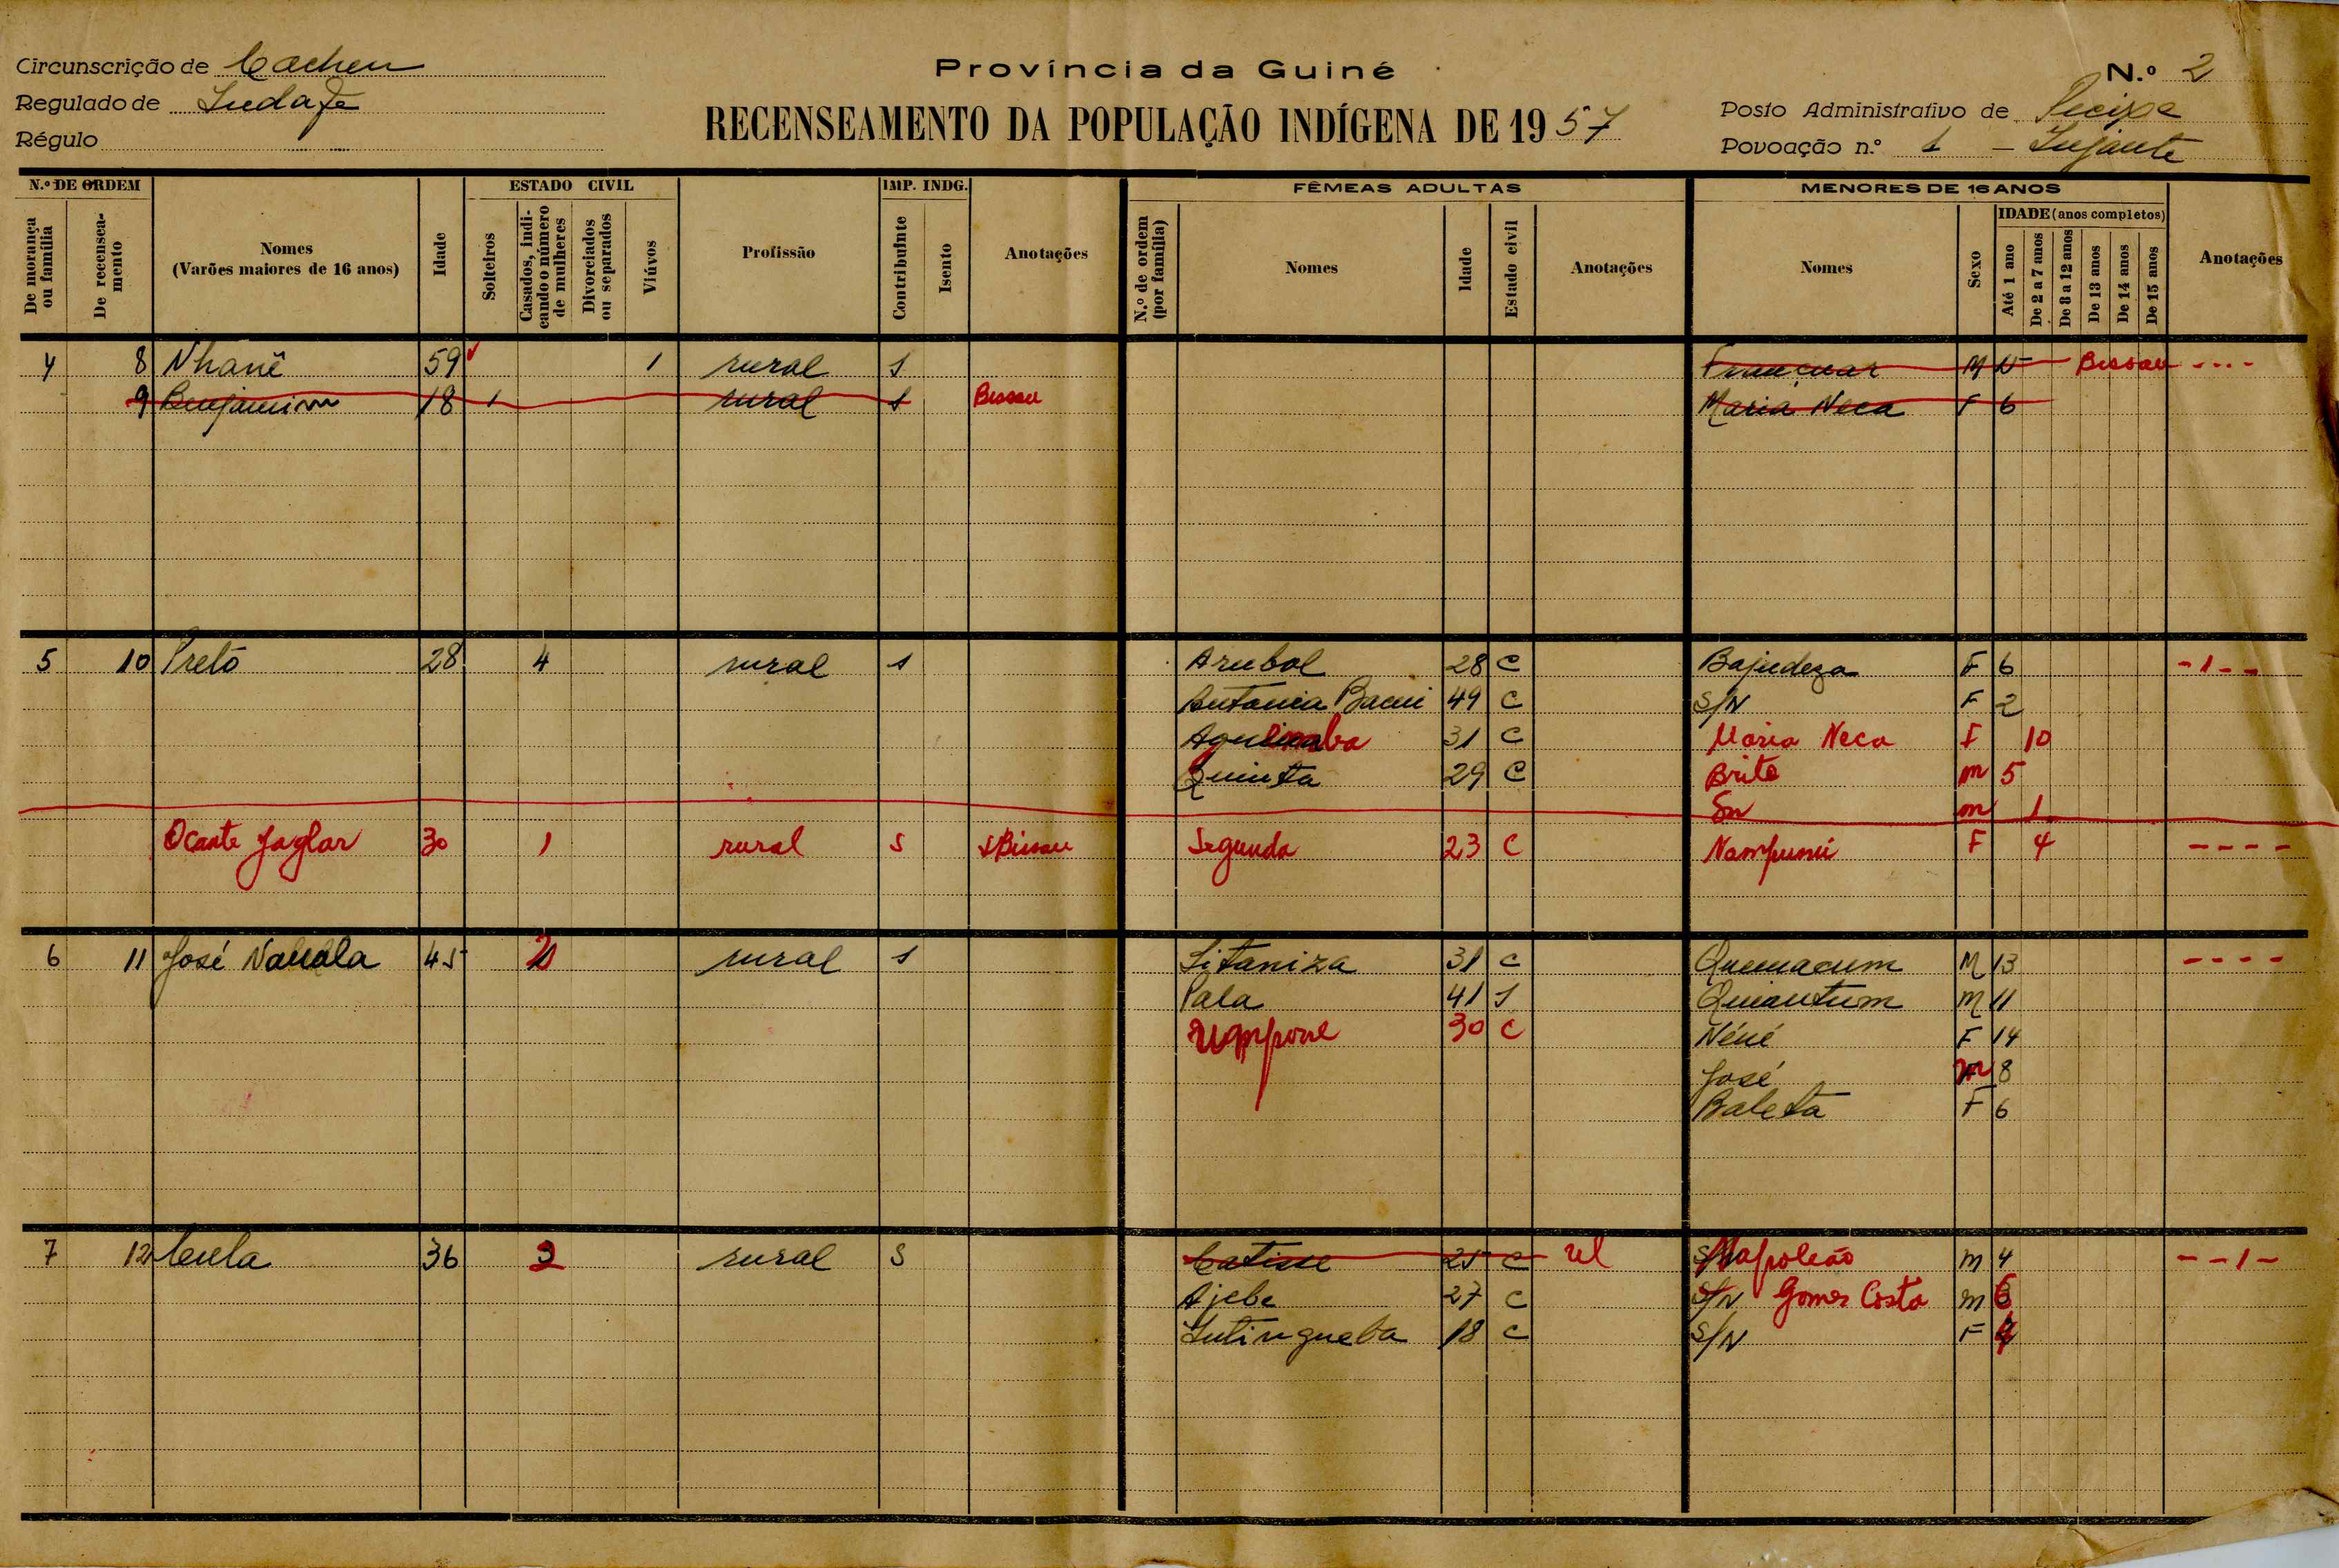 Circunscrição de Cacheu
Província da Guiné
N.º 2
Regulado de
RECENSEAMENTO DA POPULAÇÃO INDÍGENA DE 1957
Posto Administrativo de Pecixe
Régulo
Povoação n.º 1 –
N.º DE ORDEM
ESTADO CIVIL
IMP. INDG.
FÊMEAS ADULTAS
MENORES DE 16 ANOS
De morança ou família
De recensea-mento
Nomes
(Varões maiores de 16 anos)
Idade
Solteiros
Casados, indi-cando o número de mulheres
Divorciados ou separados
Viúvos
Profissão
Contribuinte
Isento
Anotações
N.º de ordem (por família)
Nomes
Idade
Estado civil
Anotações
Nomes
Sexo
IDADE (anos completos)
Até 1 ano
De 2 a 7 anos
De 8 a 12 anos
De 13 anos
De 14 anos
De 15 anos
Anotações
4 8 Nhanê 59 1 rural s M Bissau - - - -
9 Benjamim 18 1 rural s Bissau Maria Neca F 6
5 10 Preto 28 4 rural s Arubol 28 C Bajudeza F 6 - 1 - -
Antonia 49 C S/N F 2
31 C Maria Neca F 10
Quinta 29 C Brito m 5
Sn m 1
Ocante Jaglar 30 1 rural S Bissau Segunda 23 C F 4 - - - -
6 11 José 45 2 rural s Sitaniza 31 C Quemacum M 13 - - - -
Pala 41 S Quiantum M 11
30 C Néné F 14
José m 8
Baleta F 6
7 12 36 rural S 25 C S/N Napoleão m 4 - - 1 -
Ajebe 27 C S/N Gomes Costa m 6
18 C S/N F